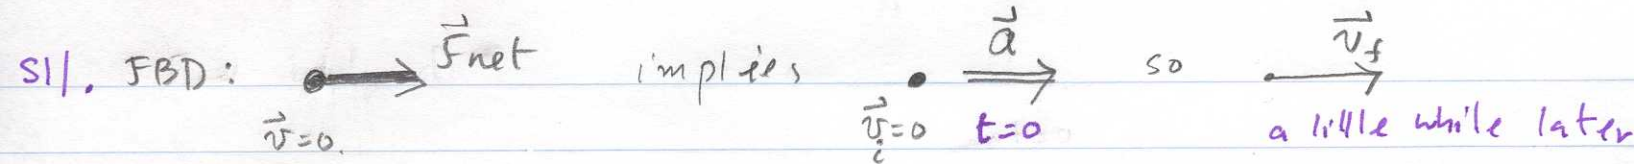 S1/. FBD: F⃗net implies a⃗ so v⃗f
v⃗=0. v⃗i=0 t=0 a little while later